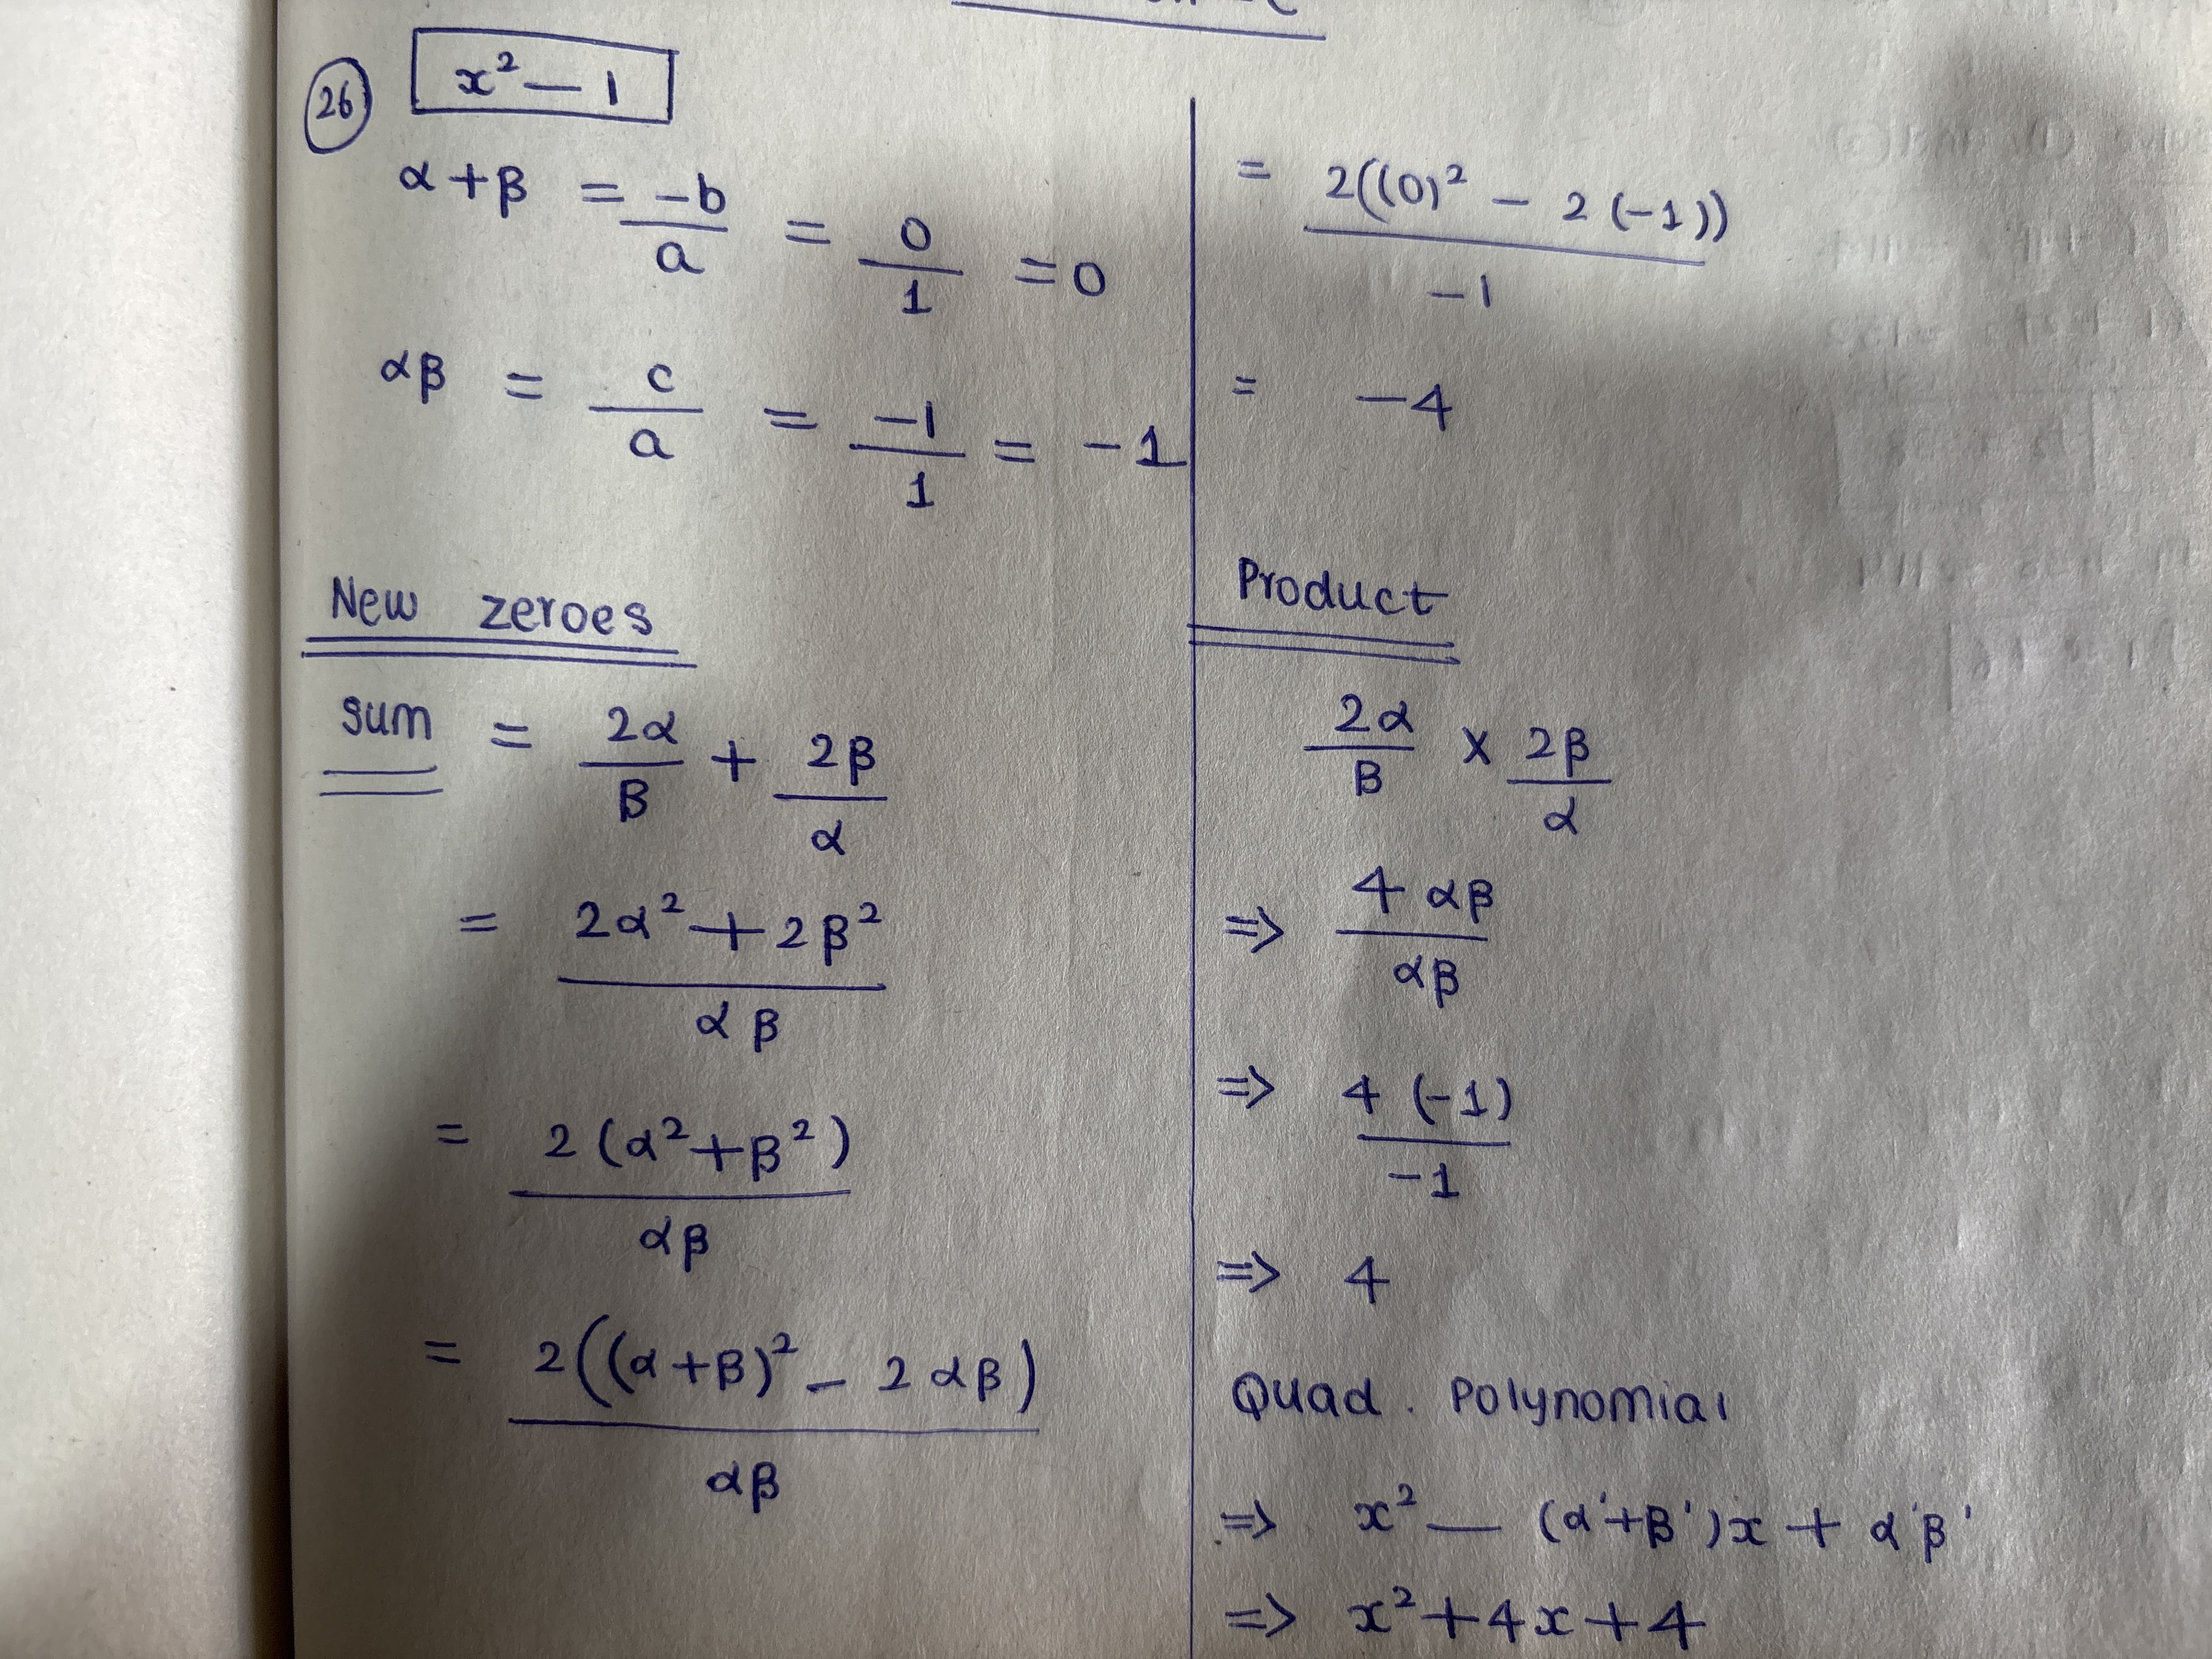 26 x² — 1
α + β = -b/a = 0/1 = 0
αβ = c/a = -1/1 = -1
New zeroes
sum = 2α/β + 2β/α
= (2α² + 2β²)/αβ
= 2(α² + β²)/αβ
= 2((α + β)² - 2αβ)/αβ
= 2((0)² - 2(-1))/-1
= -4
Product
2α/β × 2β/α
=> 4αβ/αβ
=> 4(-1)/-1
=> 4
Quad. Polynomial
=> x² — (α' + β')x + α'β'
=> x² + 4x + 4